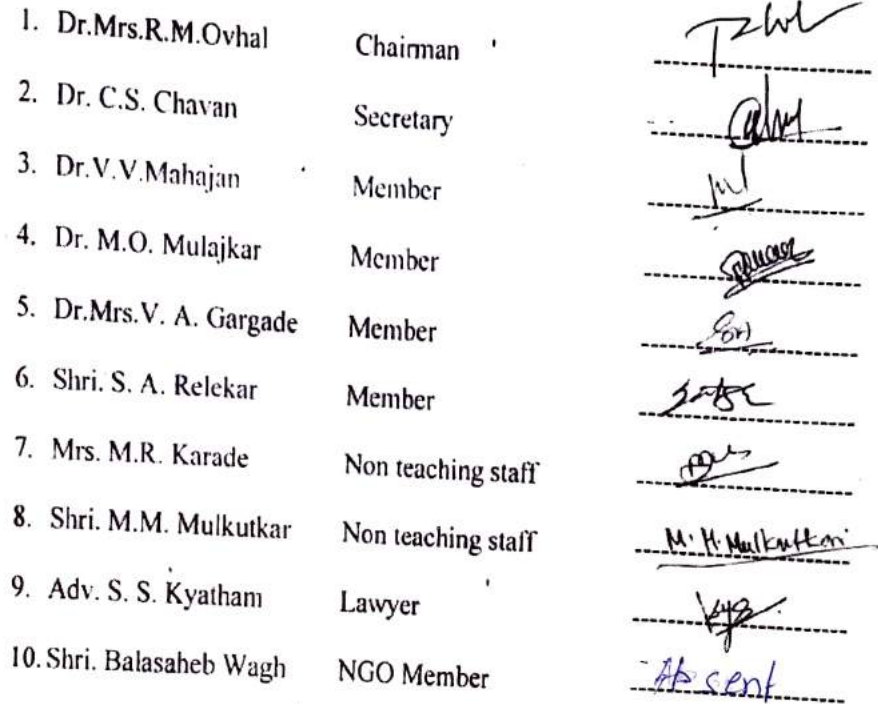 1. Dr.Mrs.R.M.Ovhal Chairman
2. Dr. C.S. Chavan Secretary
3. Dr.V.V.Mahajan Member
4. Dr. M.O. Mulajkar Member
5. Dr.Mrs.V. A. Gargade Member
6. Shri. S. A. Relekar Member
7. Mrs. M.R. Karade Non teaching staff
8. Shri. M.M. Mulkutkar Non teaching staff M. M. Mulkutkar
9. Adv. S. S. Kyatham Lawyer
10. Shri. Balasaheb Wagh NGO Member Absent